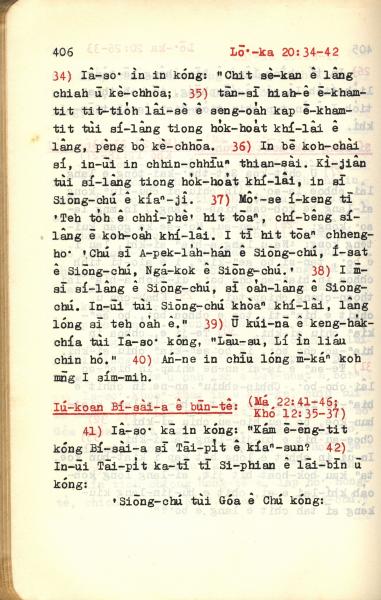 406 Lō͘-ka 20:34-42
34) Iâ-so͘ ìn in kóng: "Chit sè-kan ê lâng
chiah ū kè-chhōa; 35) tān-sī hiah-ê ē-kham-
tit tit-tio̍h lâi-sè ê seng-oa̍h kap ē-kham-
tit tùi sí-lâng tiong ho̍k-hoa̍t khí-lâi ê
lâng, pēng bô kè-chhōa. 36) In bē koh-chài
sí, in-ūi in chhin-chhīuⁿ thian-sài. Kì-jiân
tùi sí-lâng tiong ho̍k-hoa̍t khí-lâi, in sī
Siōng-chú ê kíaⁿ-jî. 37) Mô͘-se í-keng tī
'Teh to̍h ê chhì-phè' hit tōaⁿ, chí-bêng sí-
lâng ē koh-oa̍h khí-lâi. I tī hit tōaⁿ chheng-
ho͘ 'Chú sī A-pek-la̍h-hán ê Siōng-chú, Í-sat
ê Siōng-chú, Ngá-kok ê Siōng-chú.' 38) I m̄-
sī sí-lâng ê Siōng-chú, sī oa̍h-lâng ê Siōng-
chú. In-ūi tùi Siōng-chú khòaⁿ khí-lâi, lâng
lóng sī teh oa̍h ê." 39) Ū kúi-nā ê keng-ha̍k-
chía tùi Iâ-so͘ kóng, "Lāu-su, Lí ìn liáu
chin hó." 40) Án-ne in chīu lóng m̄-káⁿ koh
mn̄g I sím-mih.
Iú-koan Bí-sài-a ê būn-tê: (Má 22:41-46;
Khó 12:35-37)
41) Iâ-so͘ kā in kóng: "Kám ē-ēng-tit
kóng Bí-sài-a sī Tāi-pi̍t ê kíaⁿ-sun? 42)
In-ūi Tāi-pi̍t ka-tī tī Si-phian ê lāi-bīn ū
kóng:
'Siōng-chú tùi Góa ê Chú kóng: